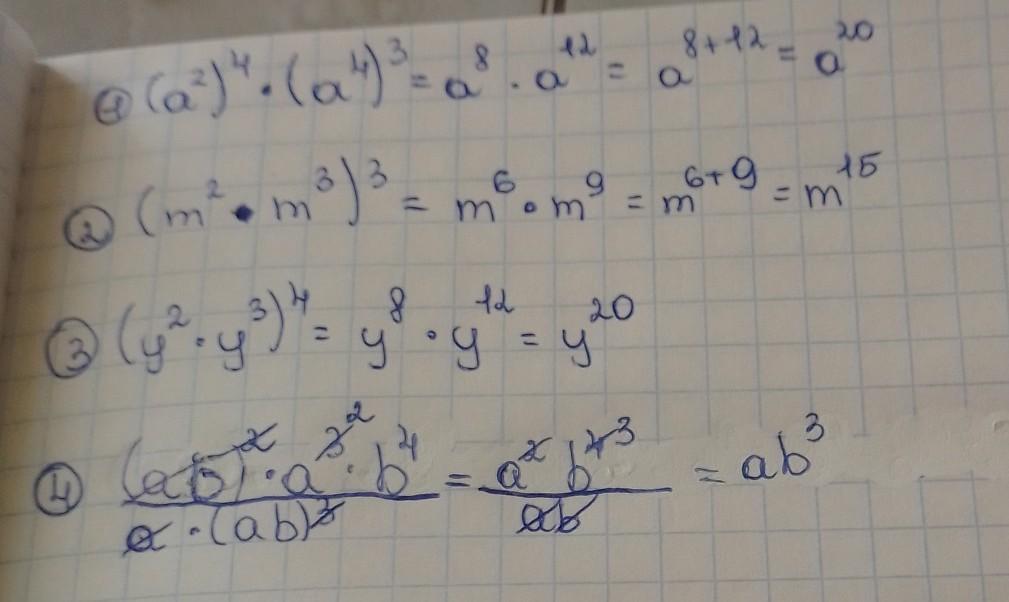 ① (a²)⁴ · (a⁴)³ = a⁸ · a¹² = a⁸⁺¹² = a²⁰
② (m² · m³)³ = m⁶ · m⁹ = m⁶⁺⁹ = m¹⁵
③ (y² · y³)⁴ = y⁸ · y¹² = y²⁰
④ (ab)² · a³ ² · b⁴ / a · (ab)³ = a² b⁴ ³ / ab = ab³